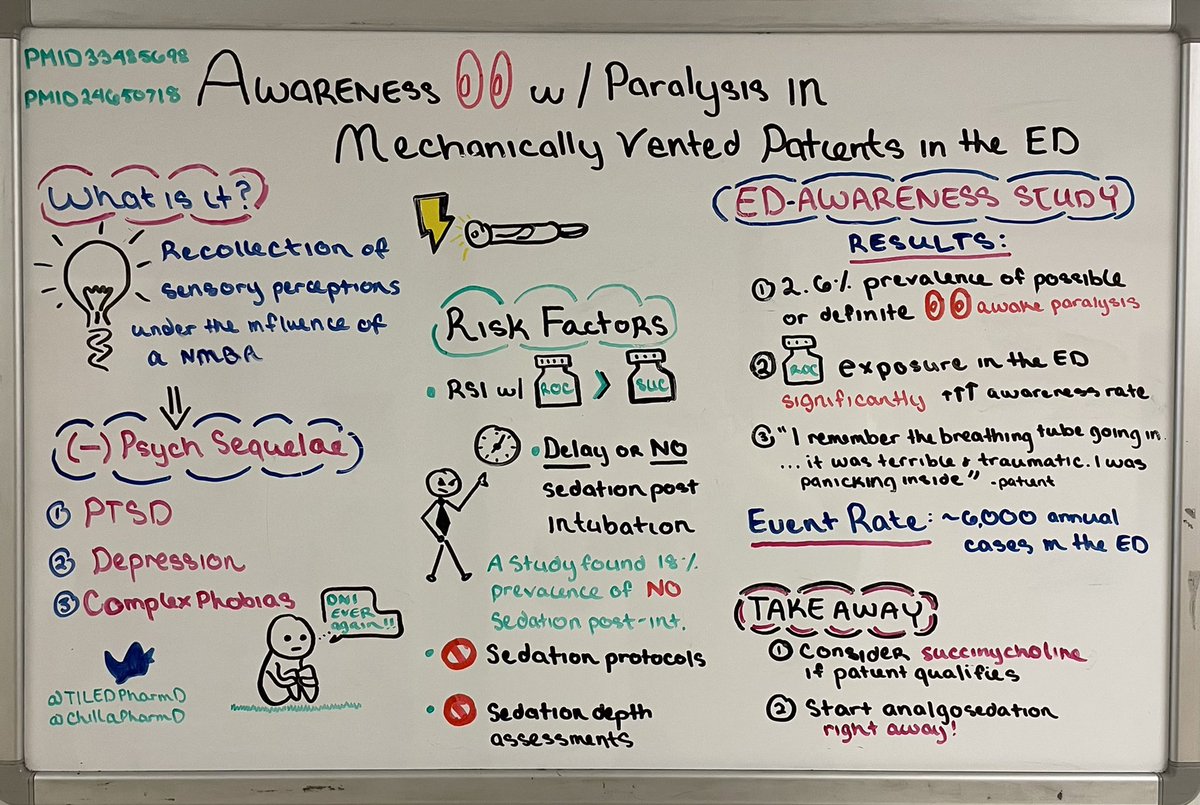 PMID33485698
PMID24650718
AWARENESS w/ Paralysis in
Mechanically Vented Patients in the ED
What is it?
Recollection of
sensory perceptions
under the influence of
a NMBA
(-) Psych Sequelae
① PTSD
② Depression
③ Complex Phobias
EVER
again!!
@TILEDPharmD
@ChillaPharmD
Risk Factors
• RSI w/ ROC > SUC
• Delay or NO
sedation post
intubation
A study found 18%
prevalence of NO
sedation post-int.
• Sedation protocols
• Sedation depth
assessments
ED-AWARENESS STUDY
RESULTS:
① 2.6% prevalence of possible
or definite awake paralysis
② ROC exposure in the ED
significantly ↑↑↑ awareness rate
③ "I remember the breathing tube going in
... it was terrible & traumatic. I was
panicking inside" -patient
Event Rate: ~6,000 annual
cases in the ED
TAKE AWAY
① Consider succinycholine
if patient qualifies
② Start analgosedation
right away!